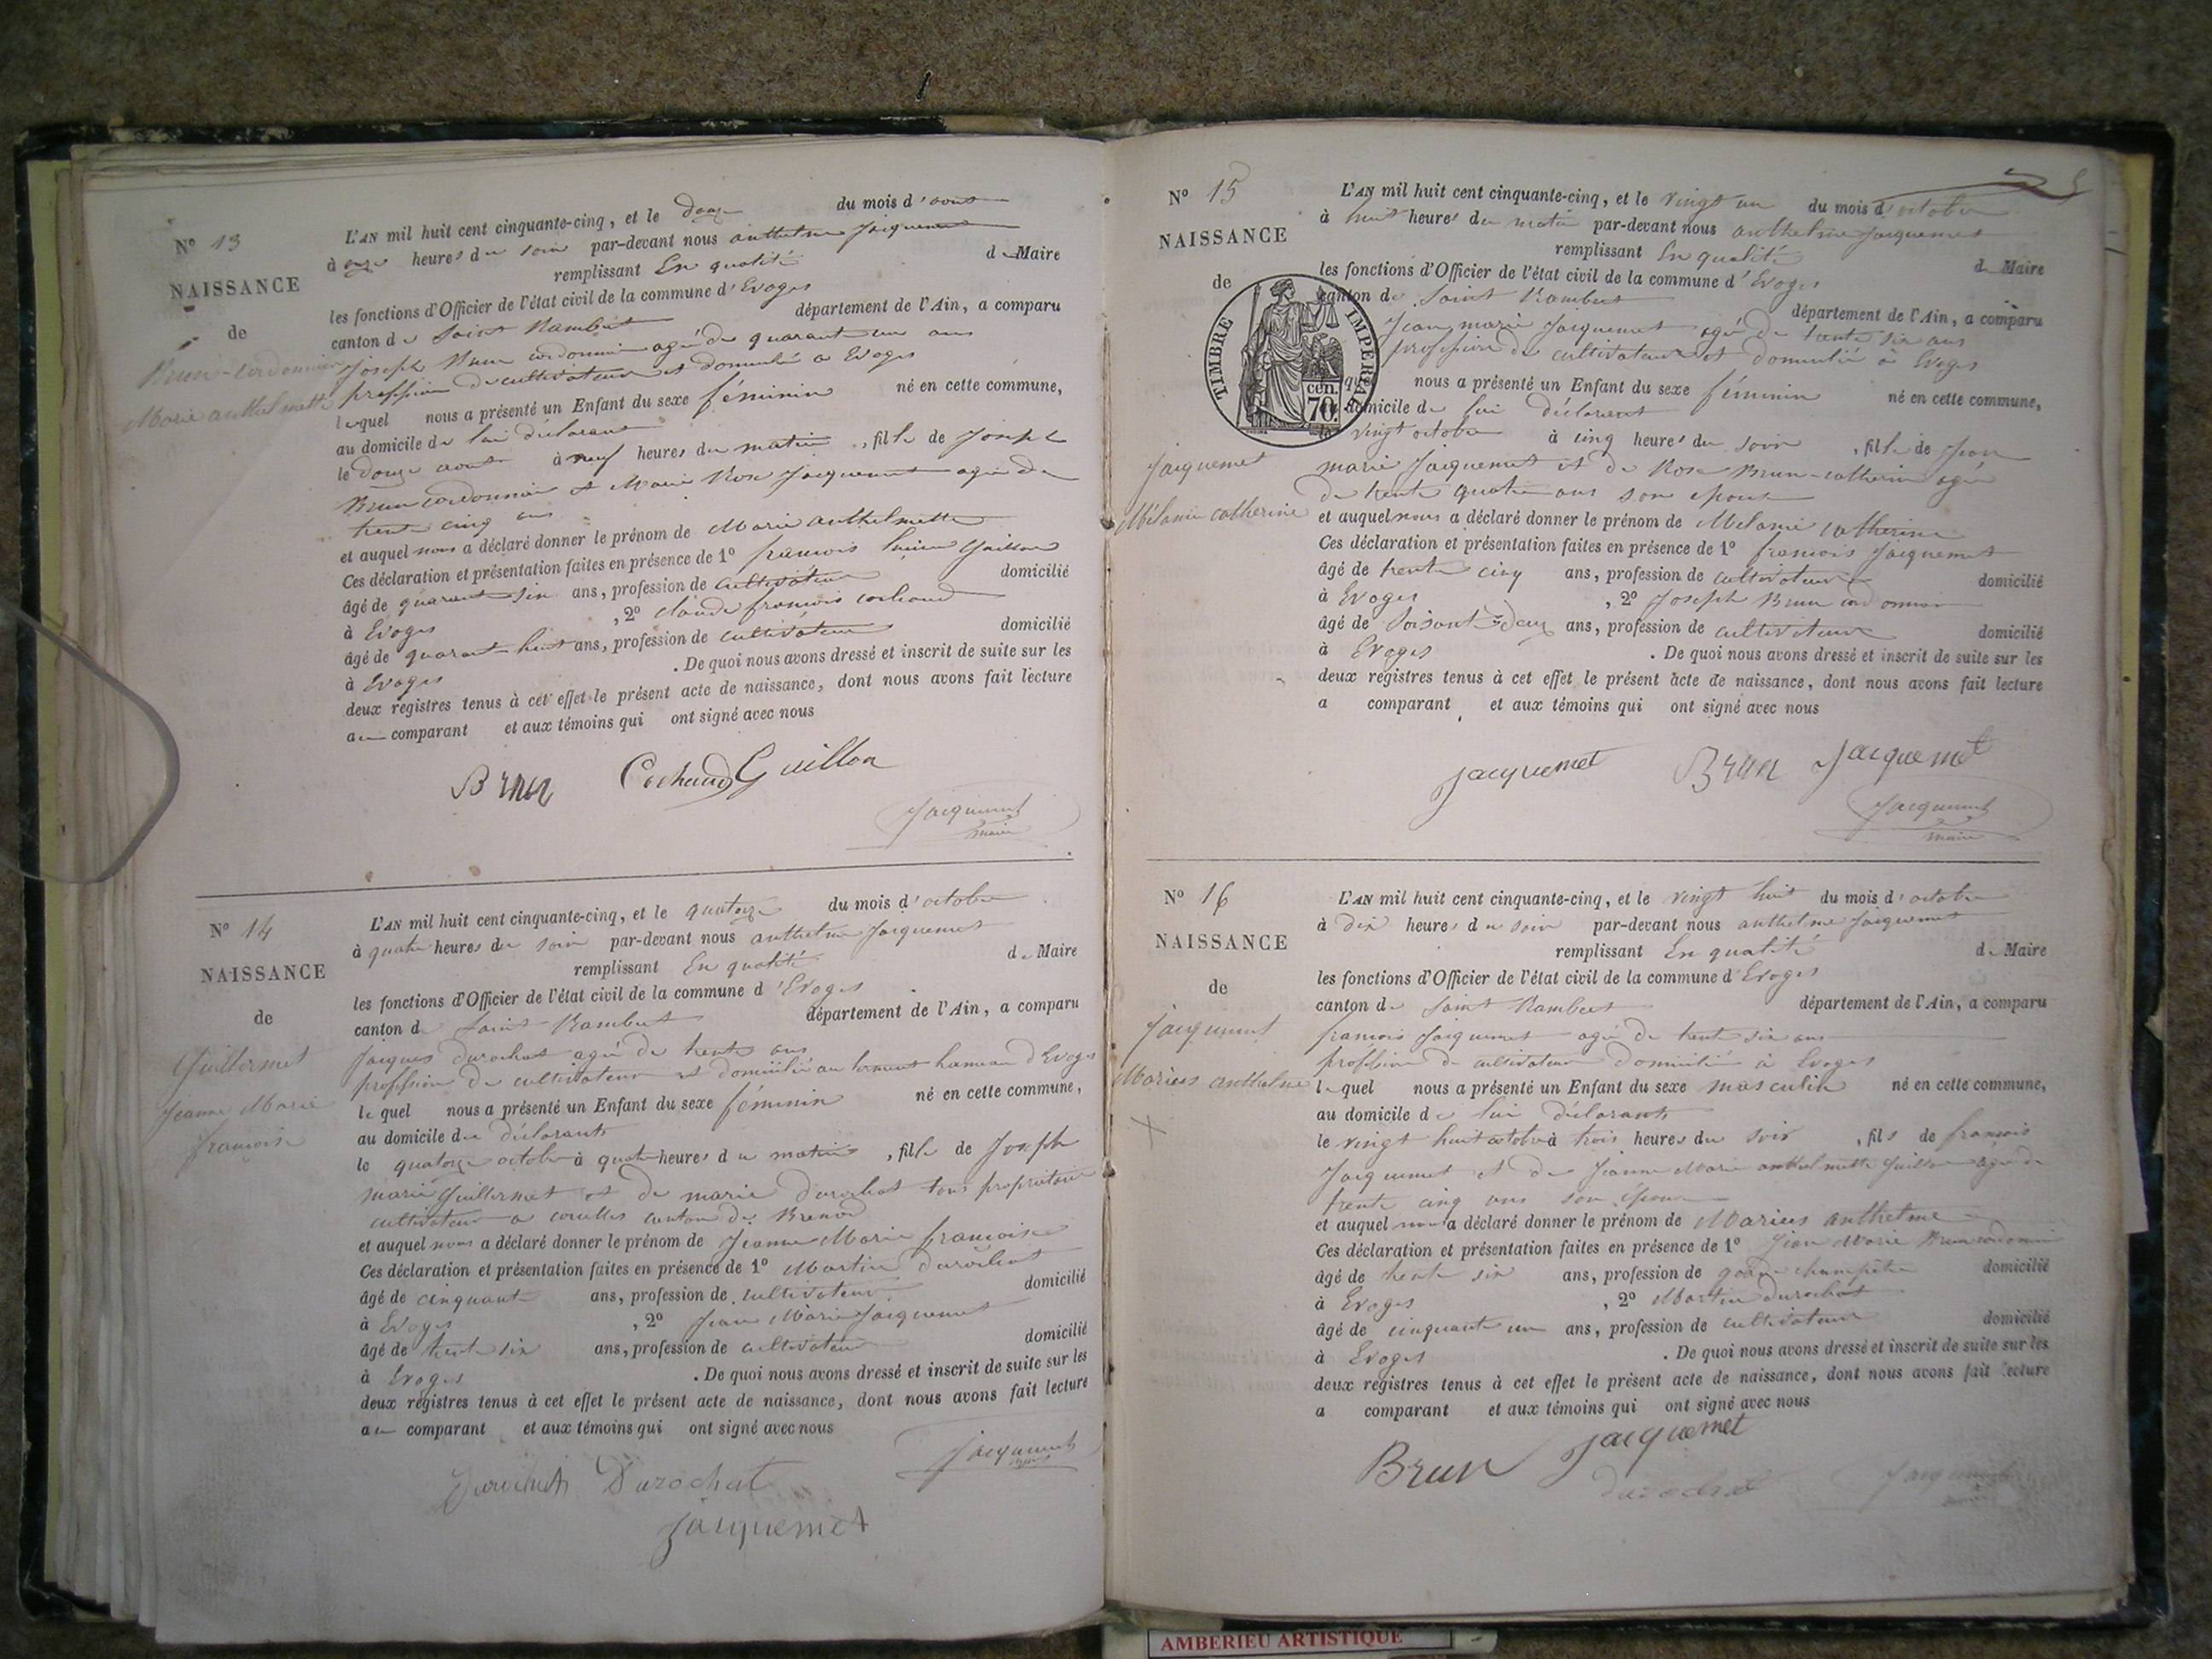 N° 13
NAISSANCE
de
Brun-cordonnier
Marie anthelmette
L'AN mil huit cent cinquante-cinq, et le douze du mois d'aout
à onze heures du soir par-devant nous anthelme Jacquemet
remplissant En qualité de Maire
les fonctions d'Officier de l'état civil de la commune d'Evoges
canton de Saint Rambert département de l'Ain, a comparu
Joseph Brun cordonnier agé de quarante un ans
profession de cultivateur et domicilié a Evoges
lequel nous a présenté un Enfant du sexe féminin né en cette commune,
au domicile de lui déclarant
le douze aout à neuf heures du matin, fille de Joseph
Brun cordonnier et Marie Rose Jacquemet agée de
trente cinq ans
et auquel nous a déclaré donner le prénom de Marie anthelmette
Ces déclaration et présentation faites en présence de 1° francois lucien Guillon
âgé de quarante six ans, profession de cultivateur domicilié
à Evoges, 2° claude francois cochaud
âgé de quarante huit ans, profession de cultivateur domicilié
à Evoges. De quoi nous avons dressé et inscrit de suite sur les
deux registres tenus à cet effet le présent acte de naissance, dont nous avons fait lecture
au comparant et aux témoins qui ont signé avec nous
Brun Cochaud Guillon
Jacquemet
maire
N° 14
NAISSANCE
de
Guillermet
Jeanne Marie
françoise
L'AN mil huit cent cinquante-cinq, et le quatorze du mois d'octobre
à quatre heures du soir par-devant nous anthelme Jacquemet
remplissant En qualité de Maire
les fonctions d'Officier de l'état civil de la commune d'Evoges
canton de Saint Rambert département de l'Ain, a comparu
Jacques durochat agé de trente ans
profession de cultivateur et domicilié au hameau d'Evoges
lequel nous a présenté un Enfant du sexe féminin né en cette commune,
au domicile du déclarant
le quatorze octobre à quatre heures du matin, fille de Joseph
marie Guillermet et de marie durochat tous propriétaire
cultivateur a corcelles canton de Brenod
et auquel nous a déclaré donner le prénom de Jeanne Marie françoise
Ces déclaration et présentation faites en présence de 1° Martin durochat
âgé de cinquante ans, profession de cultivateur domicilié
à Evoges, 2° Jean Marie Jacquemet
âgé de trente six ans, profession de cultivateur domicilié
à Evoges. De quoi nous avons dressé et inscrit de suite sur les
deux registres tenus à cet effet le présent acte de naissance, dont nous avons fait lecture
au comparant et aux témoins qui ont signé avec nous
Durochat Durochat
Jacquemet
maire
Jacquemet
N° 15
NAISSANCE
de
TIMBRE IMPERIAL
70 cen.
Jacquemet
Mélanie catherine
L'AN mil huit cent cinquante-cinq, et le vingt un du mois d'octobre
à huit heures du matin par-devant nous anthelme Jacquemet
remplissant En qualité de Maire
les fonctions d'Officier de l'état civil de la commune d'Evoges
canton de Saint Rambert département de l'Ain, a comparu
Jean marie Jacquemet agé de trente six ans
profession de cultivateur et domicilié à Evoges
quel nous a présenté un Enfant du sexe féminin né en cette commune,
au domicile de lui déclarent
le vingt octobre à cinq heures du soir, fille de Jean
marie Jacquemet et de Rose Brun-catherin agée
de trente quatre ans son epouse
et auquel nous a déclaré donner le prénom de Mélanie catherine
Ces déclaration et présentation faites en présence de 1° francois Jacquemet
âgé de trente cinq ans, profession de cultivateur domicilié
à Evoges, 2° Joseph Brun cordonnier
âgé de Soisante-deux ans, profession de cultivateur domicilié
à Evoges. De quoi nous avons dressé et inscrit de suite sur les
deux registres tenus à cet effet le présent acte de naissance, dont nous avons fait lecture
a comparant et aux témoins qui ont signé avec nous
Jacquemet Brun Jacquemet
Jacquemet
maire
N° 16
NAISSANCE
de
Jacquemet
Marius anthelme
L'AN mil huit cent cinquante-cinq, et le vingt huit du mois d'octobre
à dix heures du soir par-devant nous anthelme Jacquemet
remplissant En qualité de Maire
les fonctions d'Officier de l'état civil de la commune d'Evoges
canton de Saint Rambert département de l'Ain, a comparu
francois Jacquemet agé de trente six ans
profession de cultivateur domicilié à Evoges
lequel nous a présenté un Enfant du sexe masculin né en cette commune,
au domicile de lui déclarant
le vingt huit octobre à trois heures du soir, fils de françois
Jacquemet et de Jeanne Marie anthelmette Guillon agée de
trente cinq ans son épouse
et auquel nous a déclaré donner le prénom de Marius anthelme
Ces déclaration et présentation faites en présence de 1° Jean Marie Brun cordonnier
âgé de trente six ans, profession de garde champêtre domicilié
à Evoges, 2° Martin durochat
âgé de cinquante un ans, profession de cultivateur domicilié
à Evoges. De quoi nous avons dressé et inscrit de suite sur les
deux registres tenus à cet effet le présent acte de naissance, dont nous avons fait lecture
a comparant et aux témoins qui ont signé avec nous
Brun Jacquemet
durochat Jacquemet
maire
AMBERIEU ARTISTIQUE